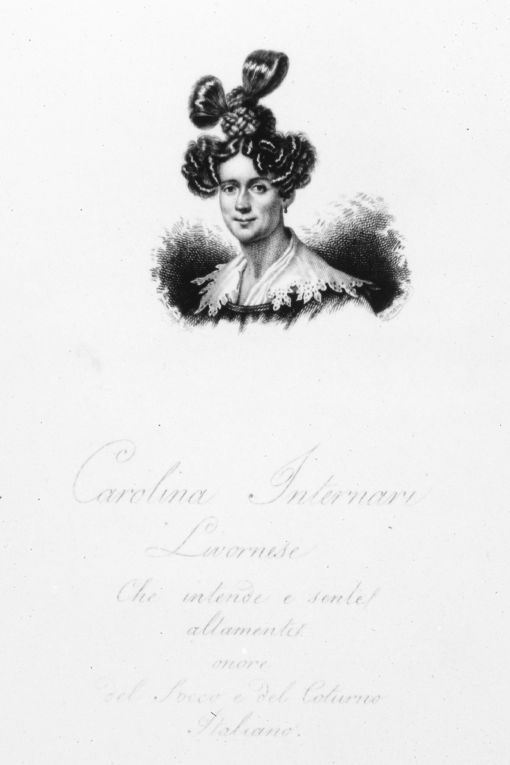 Carolina Internari
Livornese
Che intende e sente
altamente
onore
del Socco e del Coturno
Italiano.